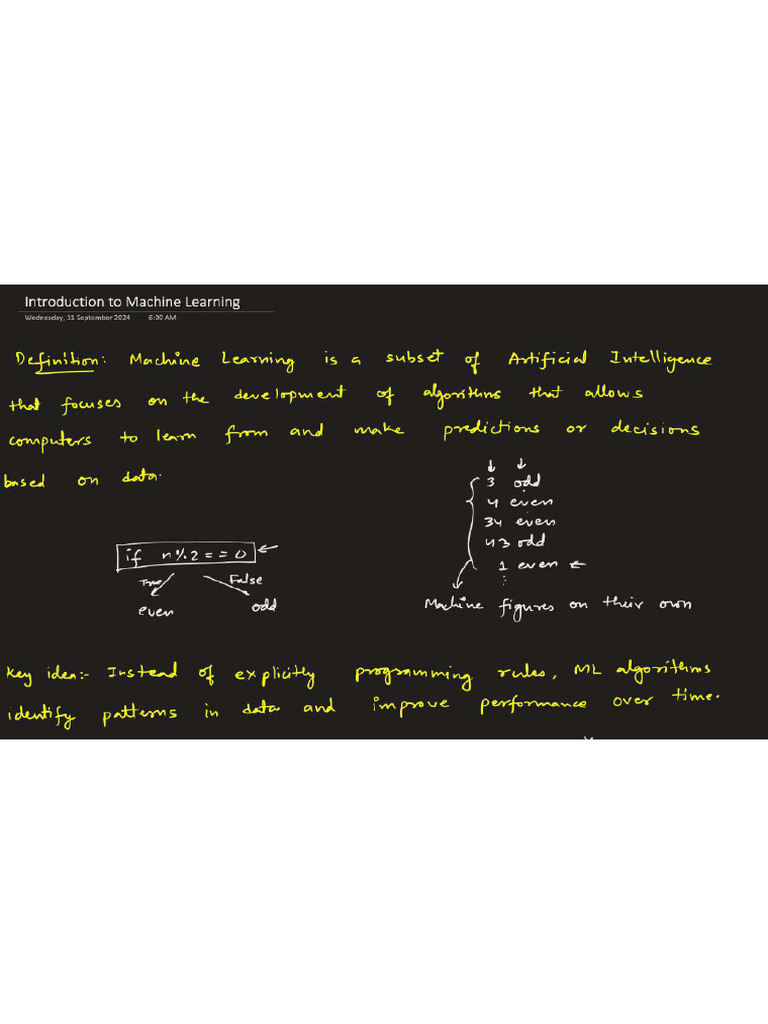 Introduction to Machine Learning
Wednesday, 11 September 2024 6:30 AM
Definition: Machine Learning is a subset of Artificial Intelligence
that focuses on the development of algorithms that allows
computers to learn from and make predictions or decisions
based on data.
3 odd
4 even
34 even
43 odd
1 even
if n%2==0
True False
even odd
Machine figures on their own
Key idea:- Instead of explicitly programming rules, ML algorithms
identify patterns in data and improve performance over time.